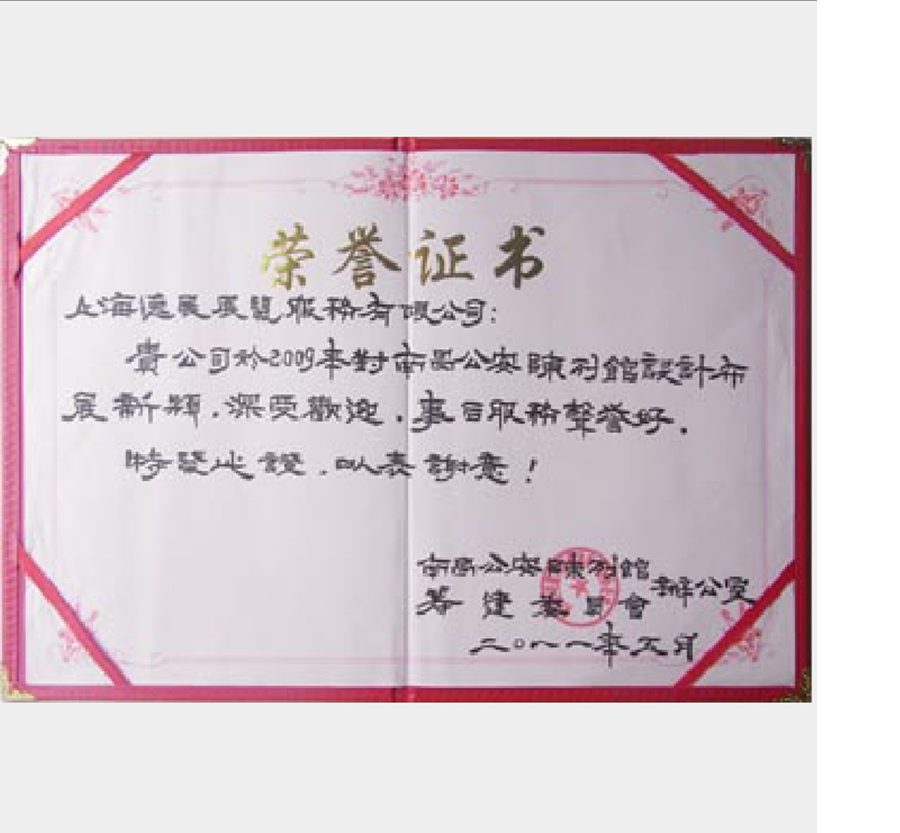 荣誉证书
上海逸展展覽服務有限公司:
貴公司於2009年對南昌公安陳列館設計布
展新穎.深受歡迎.售后服務聲誉好.
特發此證.以表謝意!
南昌公安陳列館
筹建委員會辦公室
二〇一一年五月